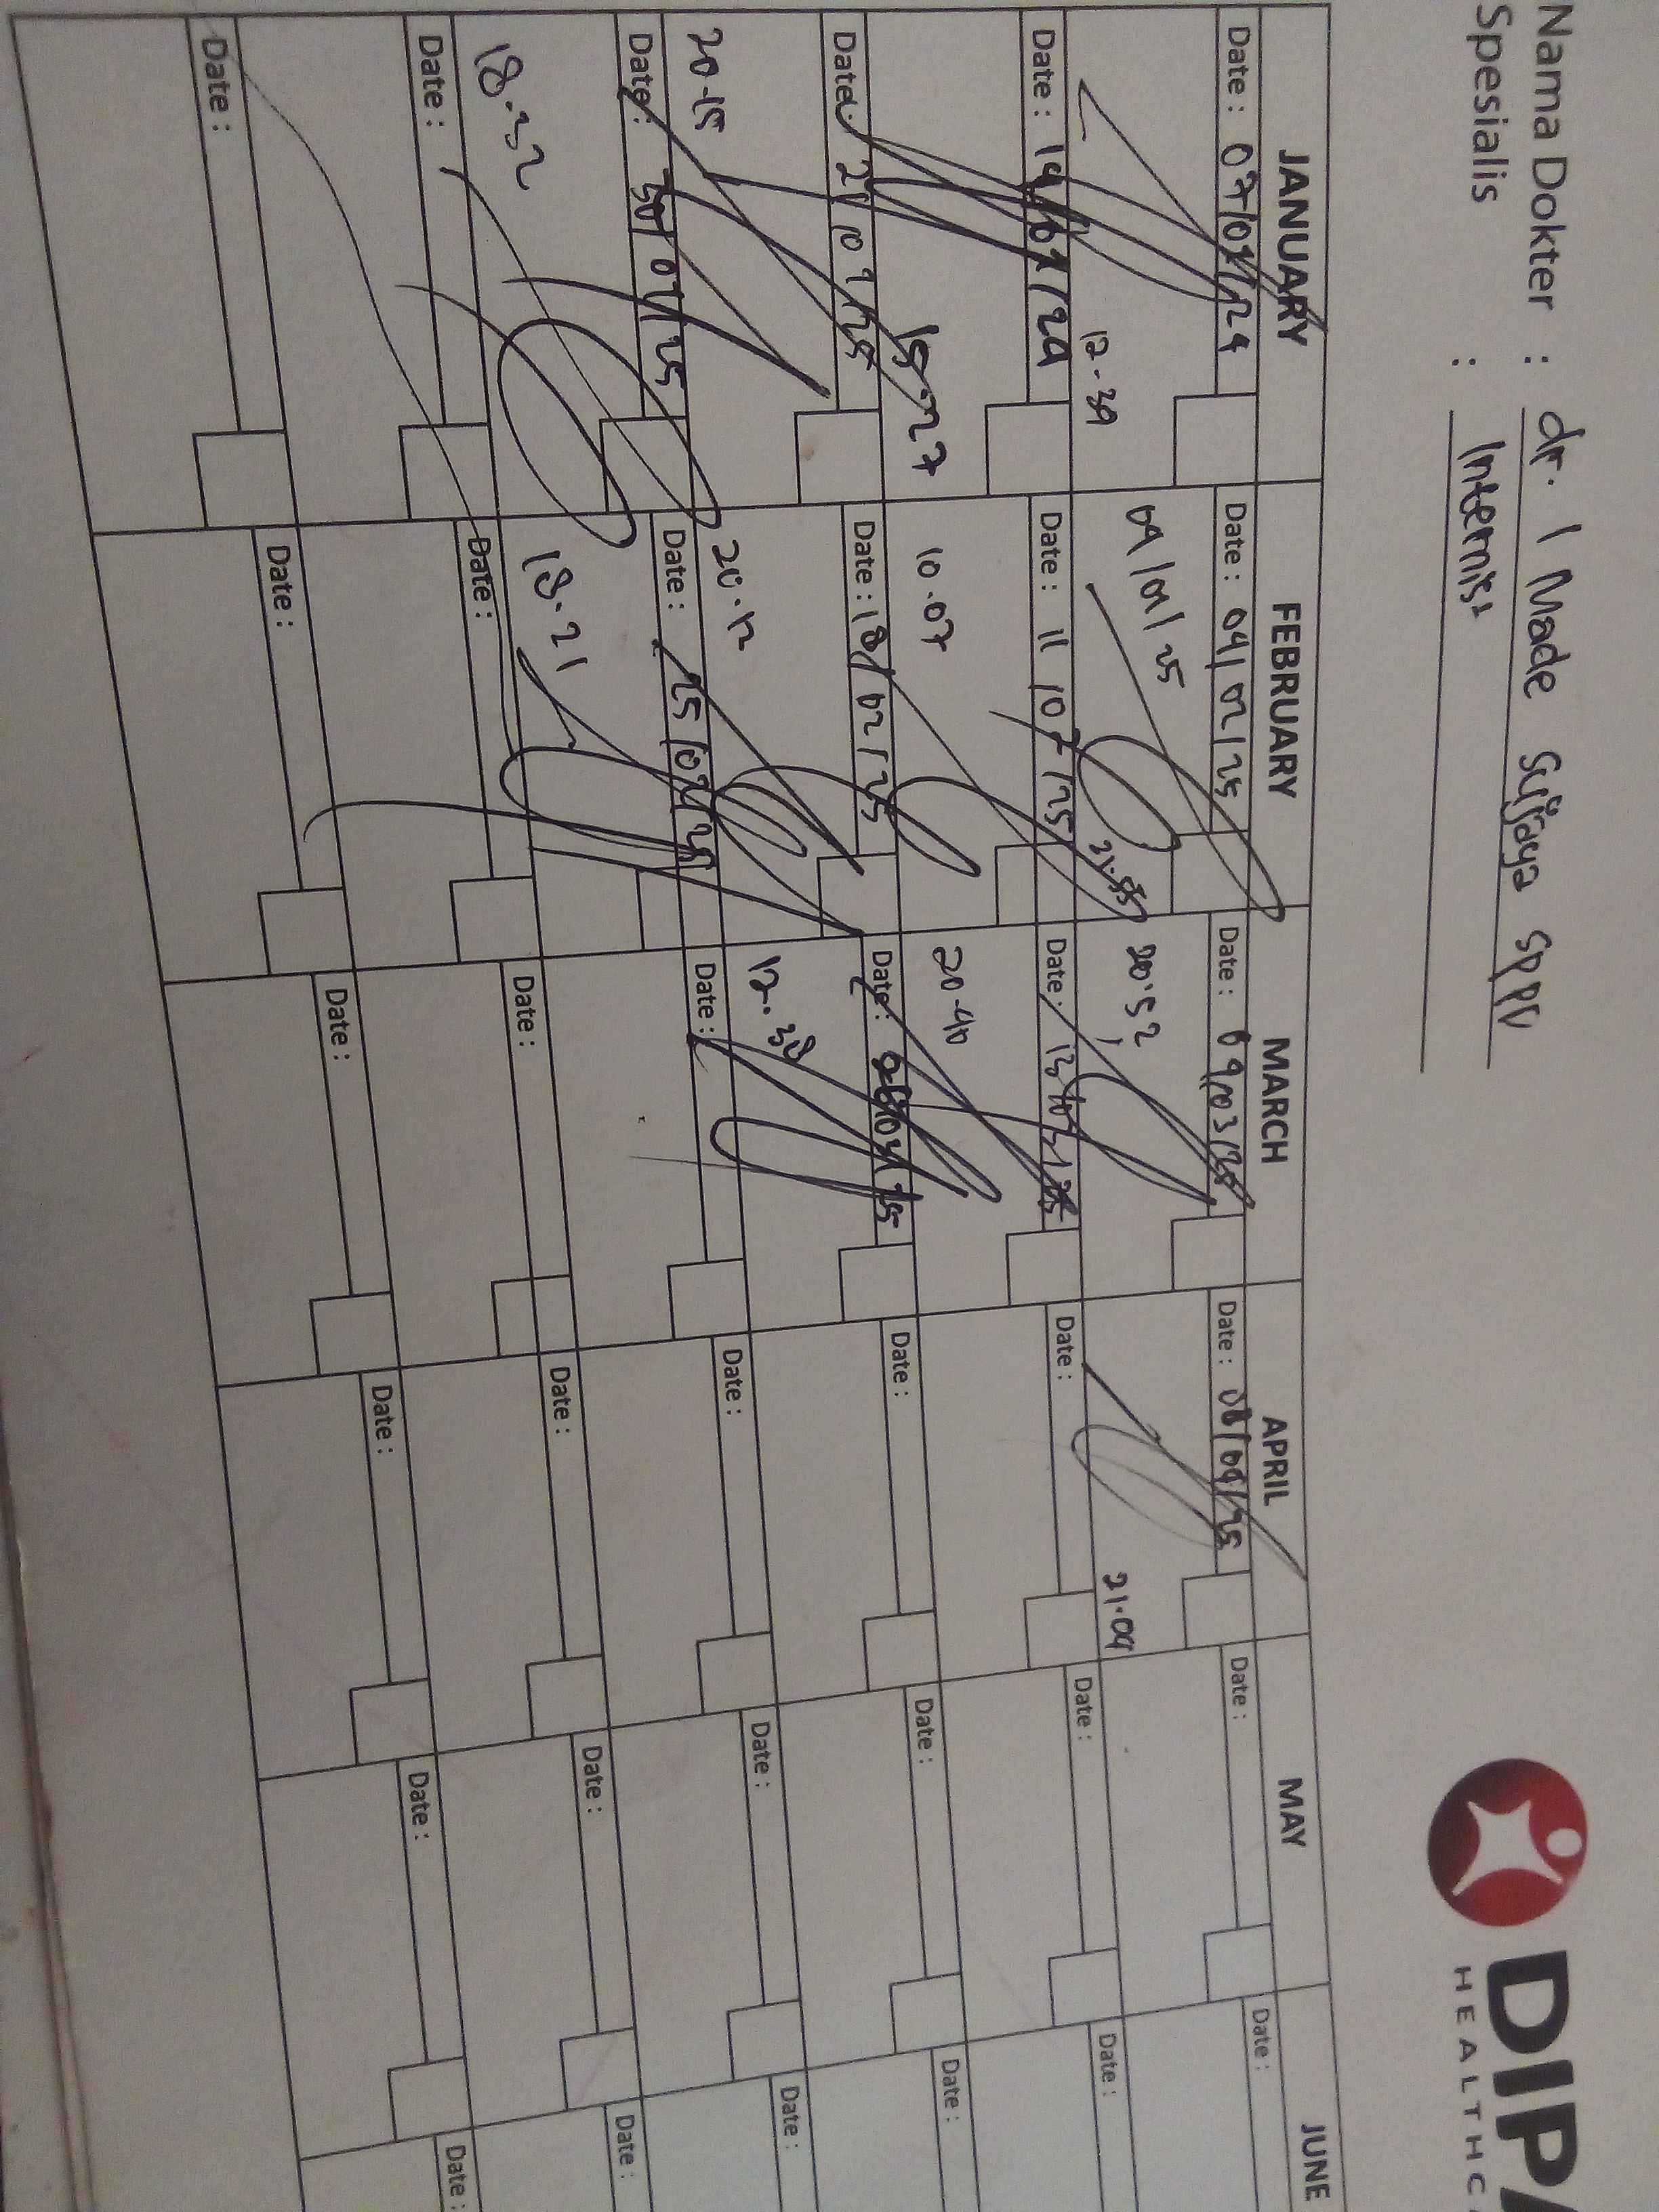 Nama Dokter : dr. I Made Sujaya SpPD
Spesialis : Internis
DIPA
HEALTHCA
JANUARY FEBRUARY MARCH APRIL MAY JUNE
Date : 07/01/24 Date : 04/02/25 Date : 09/03/25 Date : 08/04/25 Date : Date :
12-39 04/01/25 21.55 20.52 21.09
Date : 14/01/24 Date : 11/02/25 Date : 13/03/25 Date : Date : Date :
15.27 10.07 20-40
Date : 21/01/25 Date : 18/02/25 Date : Date : Date : Date :
20-15 20.12 12.38
Date : 30/01/25 Date : 25/02/25 Date : Date : Date : Date :
18.32 18.21
Date : Date : Date : Date : Date : Date :
Date : Date : Date : Date : Date : Date :